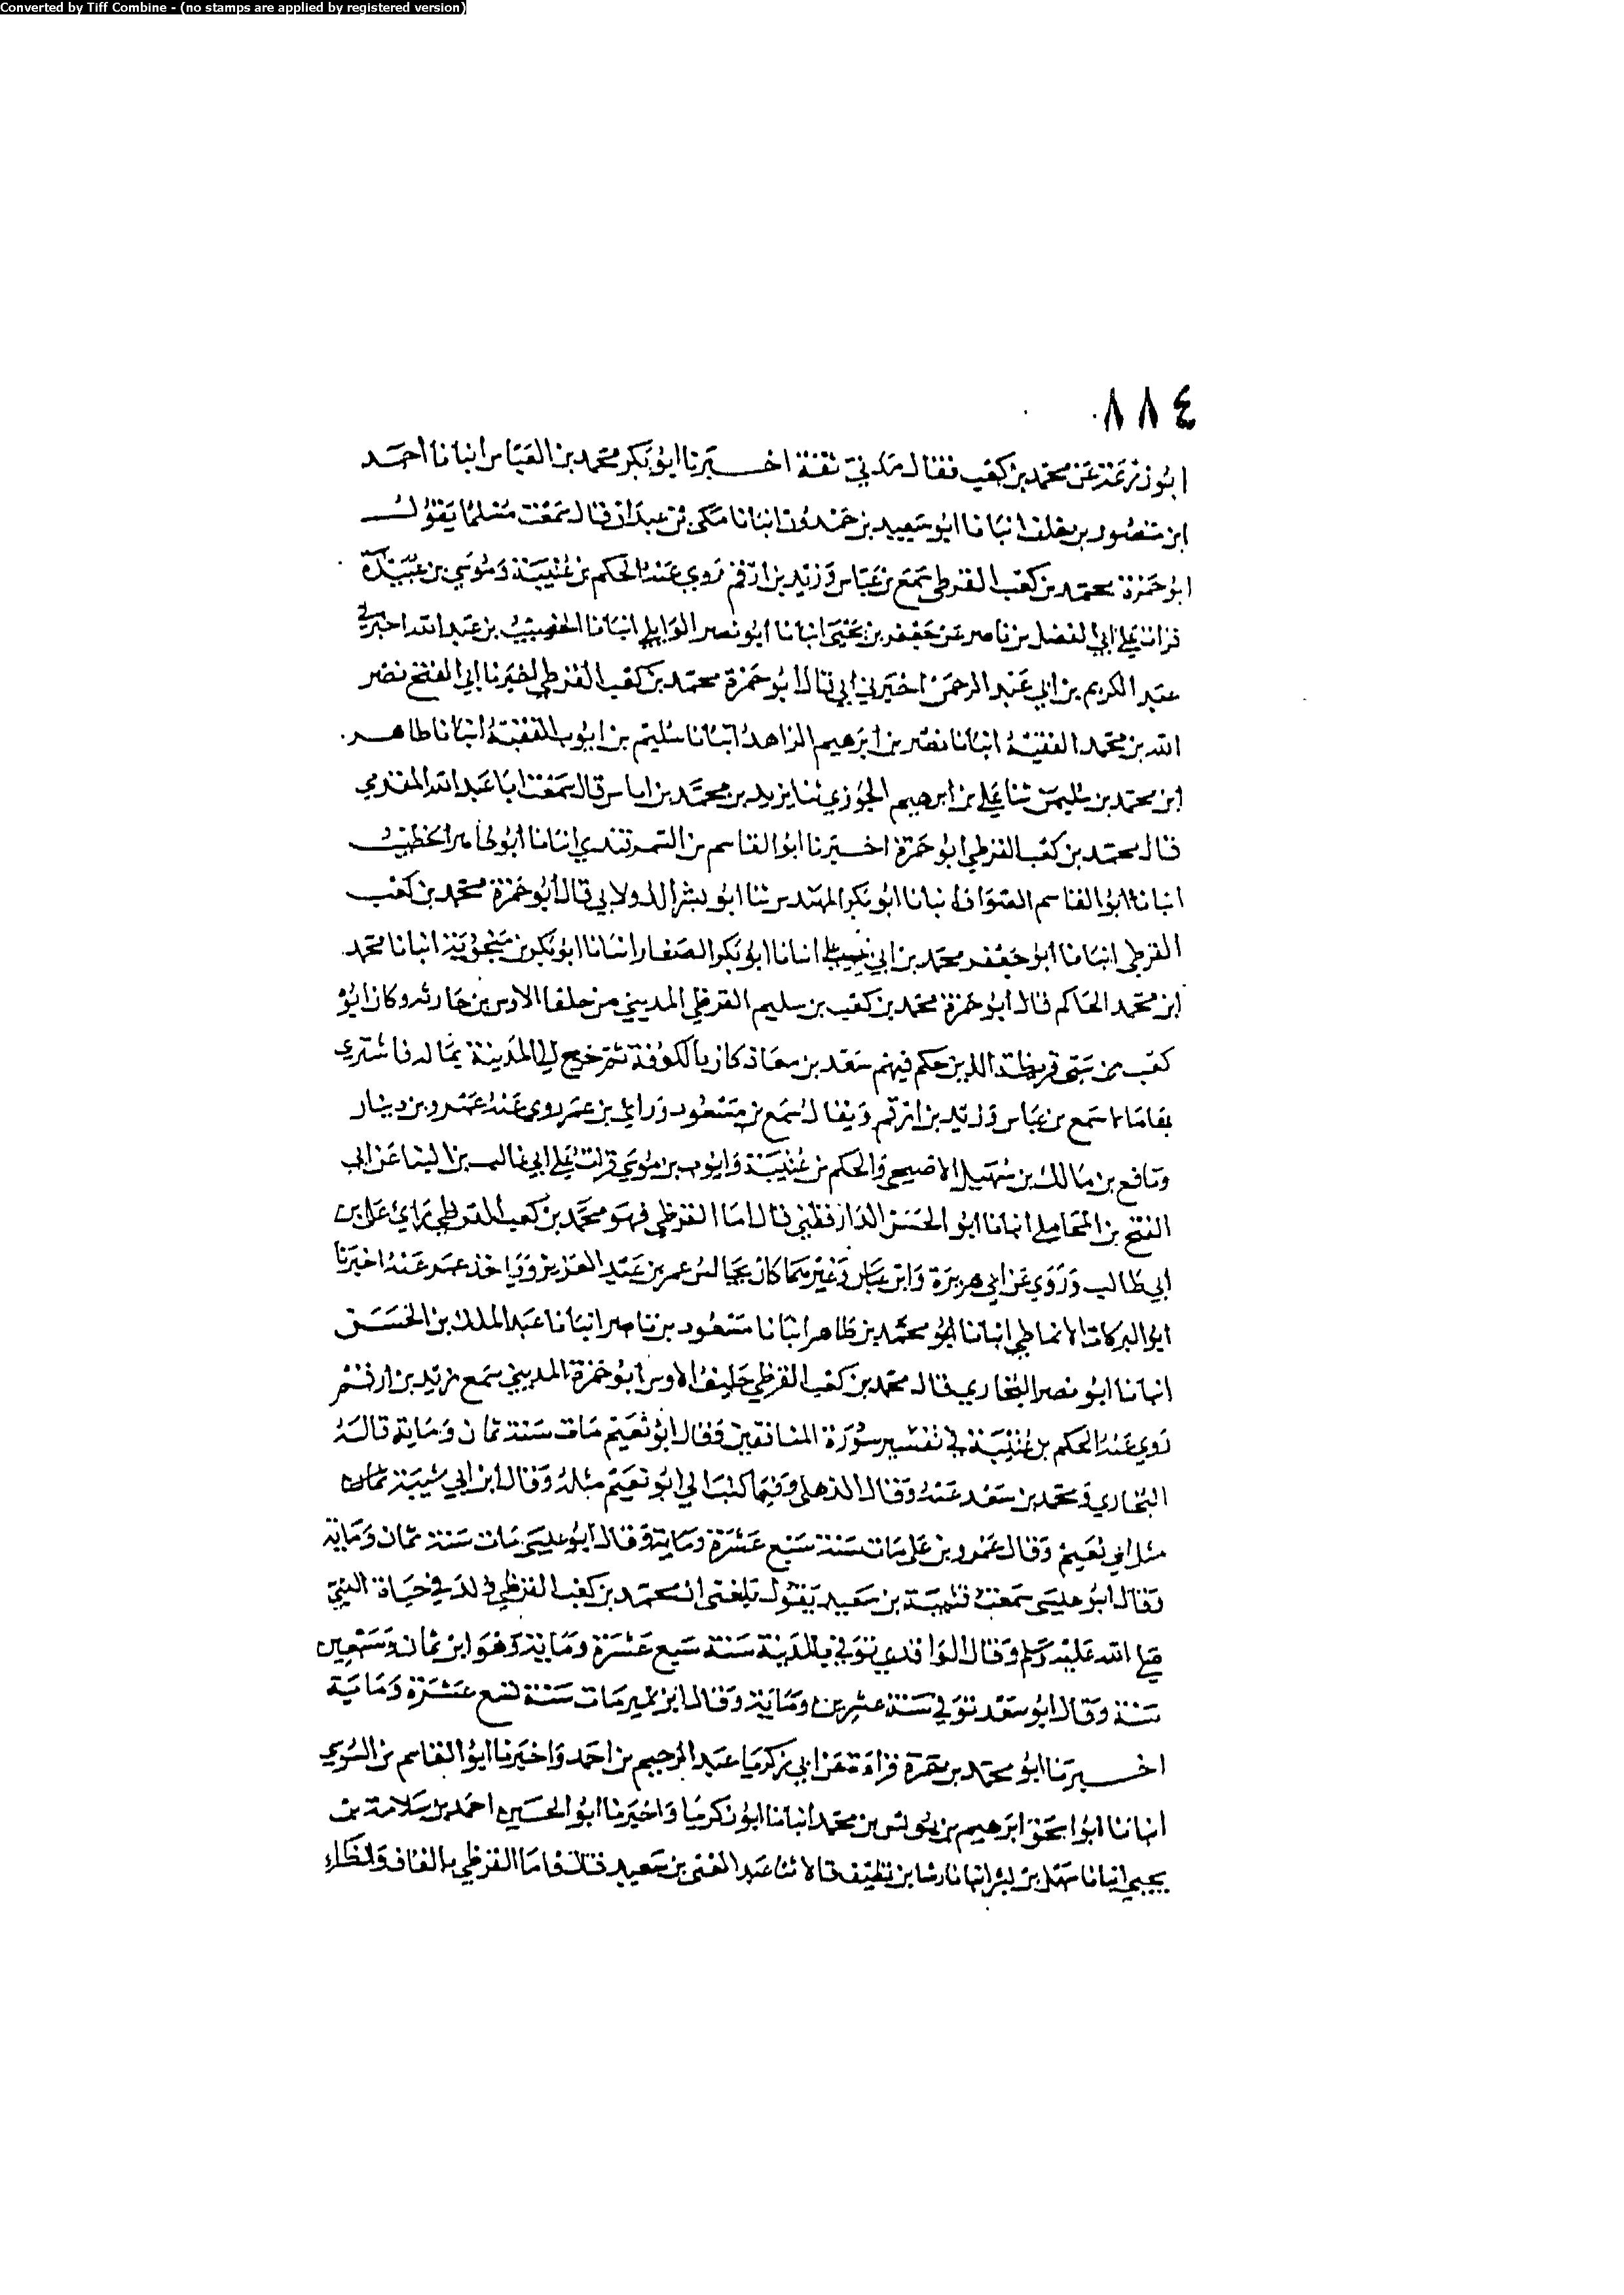 Converted by Tiff Combine - (no stamps are applied by registered version)
٨٨٤
ابوزرعة عن محمد بن كعب فقال مدني ثقة اخبرنا ابو بكر محمد بن العباس انبانا احمد
ابن منصور بن خلف انبانا ابو سعيد بن حمدون انبانا مكي بن عبدان قال سمعت مسلما يقول
ابو حمزة محمد بن كعب القرظي سمع بن عباس وزيد بن ارقم روي عنه الحكم بن عتيبة وموسي بن عبيدة
قرات علي ابي الفضل بن ناصر عن جعفر بن يحيى انبانا ابو نصر الوايلي انبانا الخصيب بن عبد الله اخبرني
عبد الكريم بن ابي عبد الرحمن اخبرني ابي قال ابو حمزة محمد بن كعب القرظي اخبرنا ابي الفتح نصر
الله بن محمد الفقيه انبانا نصر بن ابرهيم الزاهد انبانا سليم بن ايوب الفقيه انبانا طاهر
ابن محمد بن سليمن ثنا علي بن ابرهيم الجوزي ثنا يزيد بن محمد بن اياس قال سمعت ابا عبد الله المقدمي
قال محمد بن كعب القرظي ابو حمزة اخبرنا ابو القاسم بن السمرقندي انبانا ابو طاهر الخطيب
انبانا ابو القاسم الصواف انبانا ابو بكر المهندس ثنا ابو بشر الدولابي قال ابو حمزة محمد بن كعب
القرظي انبانا ابو جعفر محمد بن ابي علي انبانا ابو بكر الصفار انبانا ابو بكر بن منجوية انبانا محمد
ابن محمد الحاكم قال ابو حمزة محمد بن كعب بن سليم القرظي المديني من حلفا الاوس بن حارثه وكان ابو
كعب من سبي قريظة الذين حكم فيهم سعد بن معاذ كان بالكوفة ثم خرج الي المدينة بمال له فاشتري
بقامالا سمع بن عباس وزيد بن ارقم ويقال سمع بن مسعود وراي بن عمر روي عنه عمرو بن دينار
ونافع بن مالك بن سهيل الاصبحي والحكم بن عتيبة وايوب بن موسي قرات علي ابي غالب بن البنا عن ابي
الفتح بن المحاملي انبانا ابو الحسن الدارقطني قال اما القرظي فهو محمد بن كعب القرظي راي علي بن
ابي طالب وروي عن ابي هريرة وابن عباس وغيرهما كان يجالس عمر بن عبد العزيز وياخذ عمر عنه اخبرنا
ابو البركات الانماطي انبانا ابو محمد بن طاهر انبانا مسعود بن ناصر انبانا عبد الملك بن الحسن
انبانا ابو نصر البخاري قال محمد بن كعب القرظي حليف الاوس ابو حمزة المديني سمع زيد بن ارقم
روي عنه الحكم بن عتيبة في تفسير سورة المنافقين وقال ابو نعيم مات سنة ثمان ومايه قاله
البخاري ومحمد بن سعد عنه وقال الذهلي وفيما كتب الي ابو نعيم مثله وقال ابن ابي شيبة
مثل ابي نعيم وقال عمرو بن علي مات سنة سبع عشرة ومايه وقال ابو عيسى مات سنة ثمان ومايه
وقال ابو عيسى سمعت قتيبة بن سعيد يقول بلغني ان محمد بن كعب القرظي ولد في حياة النبي
صلى الله عليه وسلم وقال الواقدي توفي بالمدينة سنة سبع عشرة ومايه وهو ابن ثمان وسبعين
سنة وقال ابو سعد توفي سنة عشرين ومايه وقال ابن نمير مات سنة تسع عشرة ومايه
اخبرنا ابو محمد بن حمزة قراة عن ابي زكريا عبد الرحيم بن احمد واخبرنا ابو القاسم بن السوسي
انبانا ابو اسحق ابرهيم بن يونس بن محمد انبانا ابو زكريا واخبرنا ابو الحسين احمد بن سلامة بن
يحيي انبانا سهل بن بشر انبانا رشا بن نظيف قالا ثنا عبد الغني بن سعيد قال فاما القرظي بالقاف والظاء